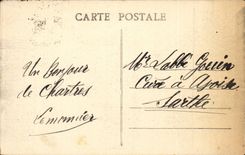 CARTE POSTALE
Un Bonjour
de Chartres
Lemonnier
Mr l'abbé Guerin
Curé à Asnières
Sarthe